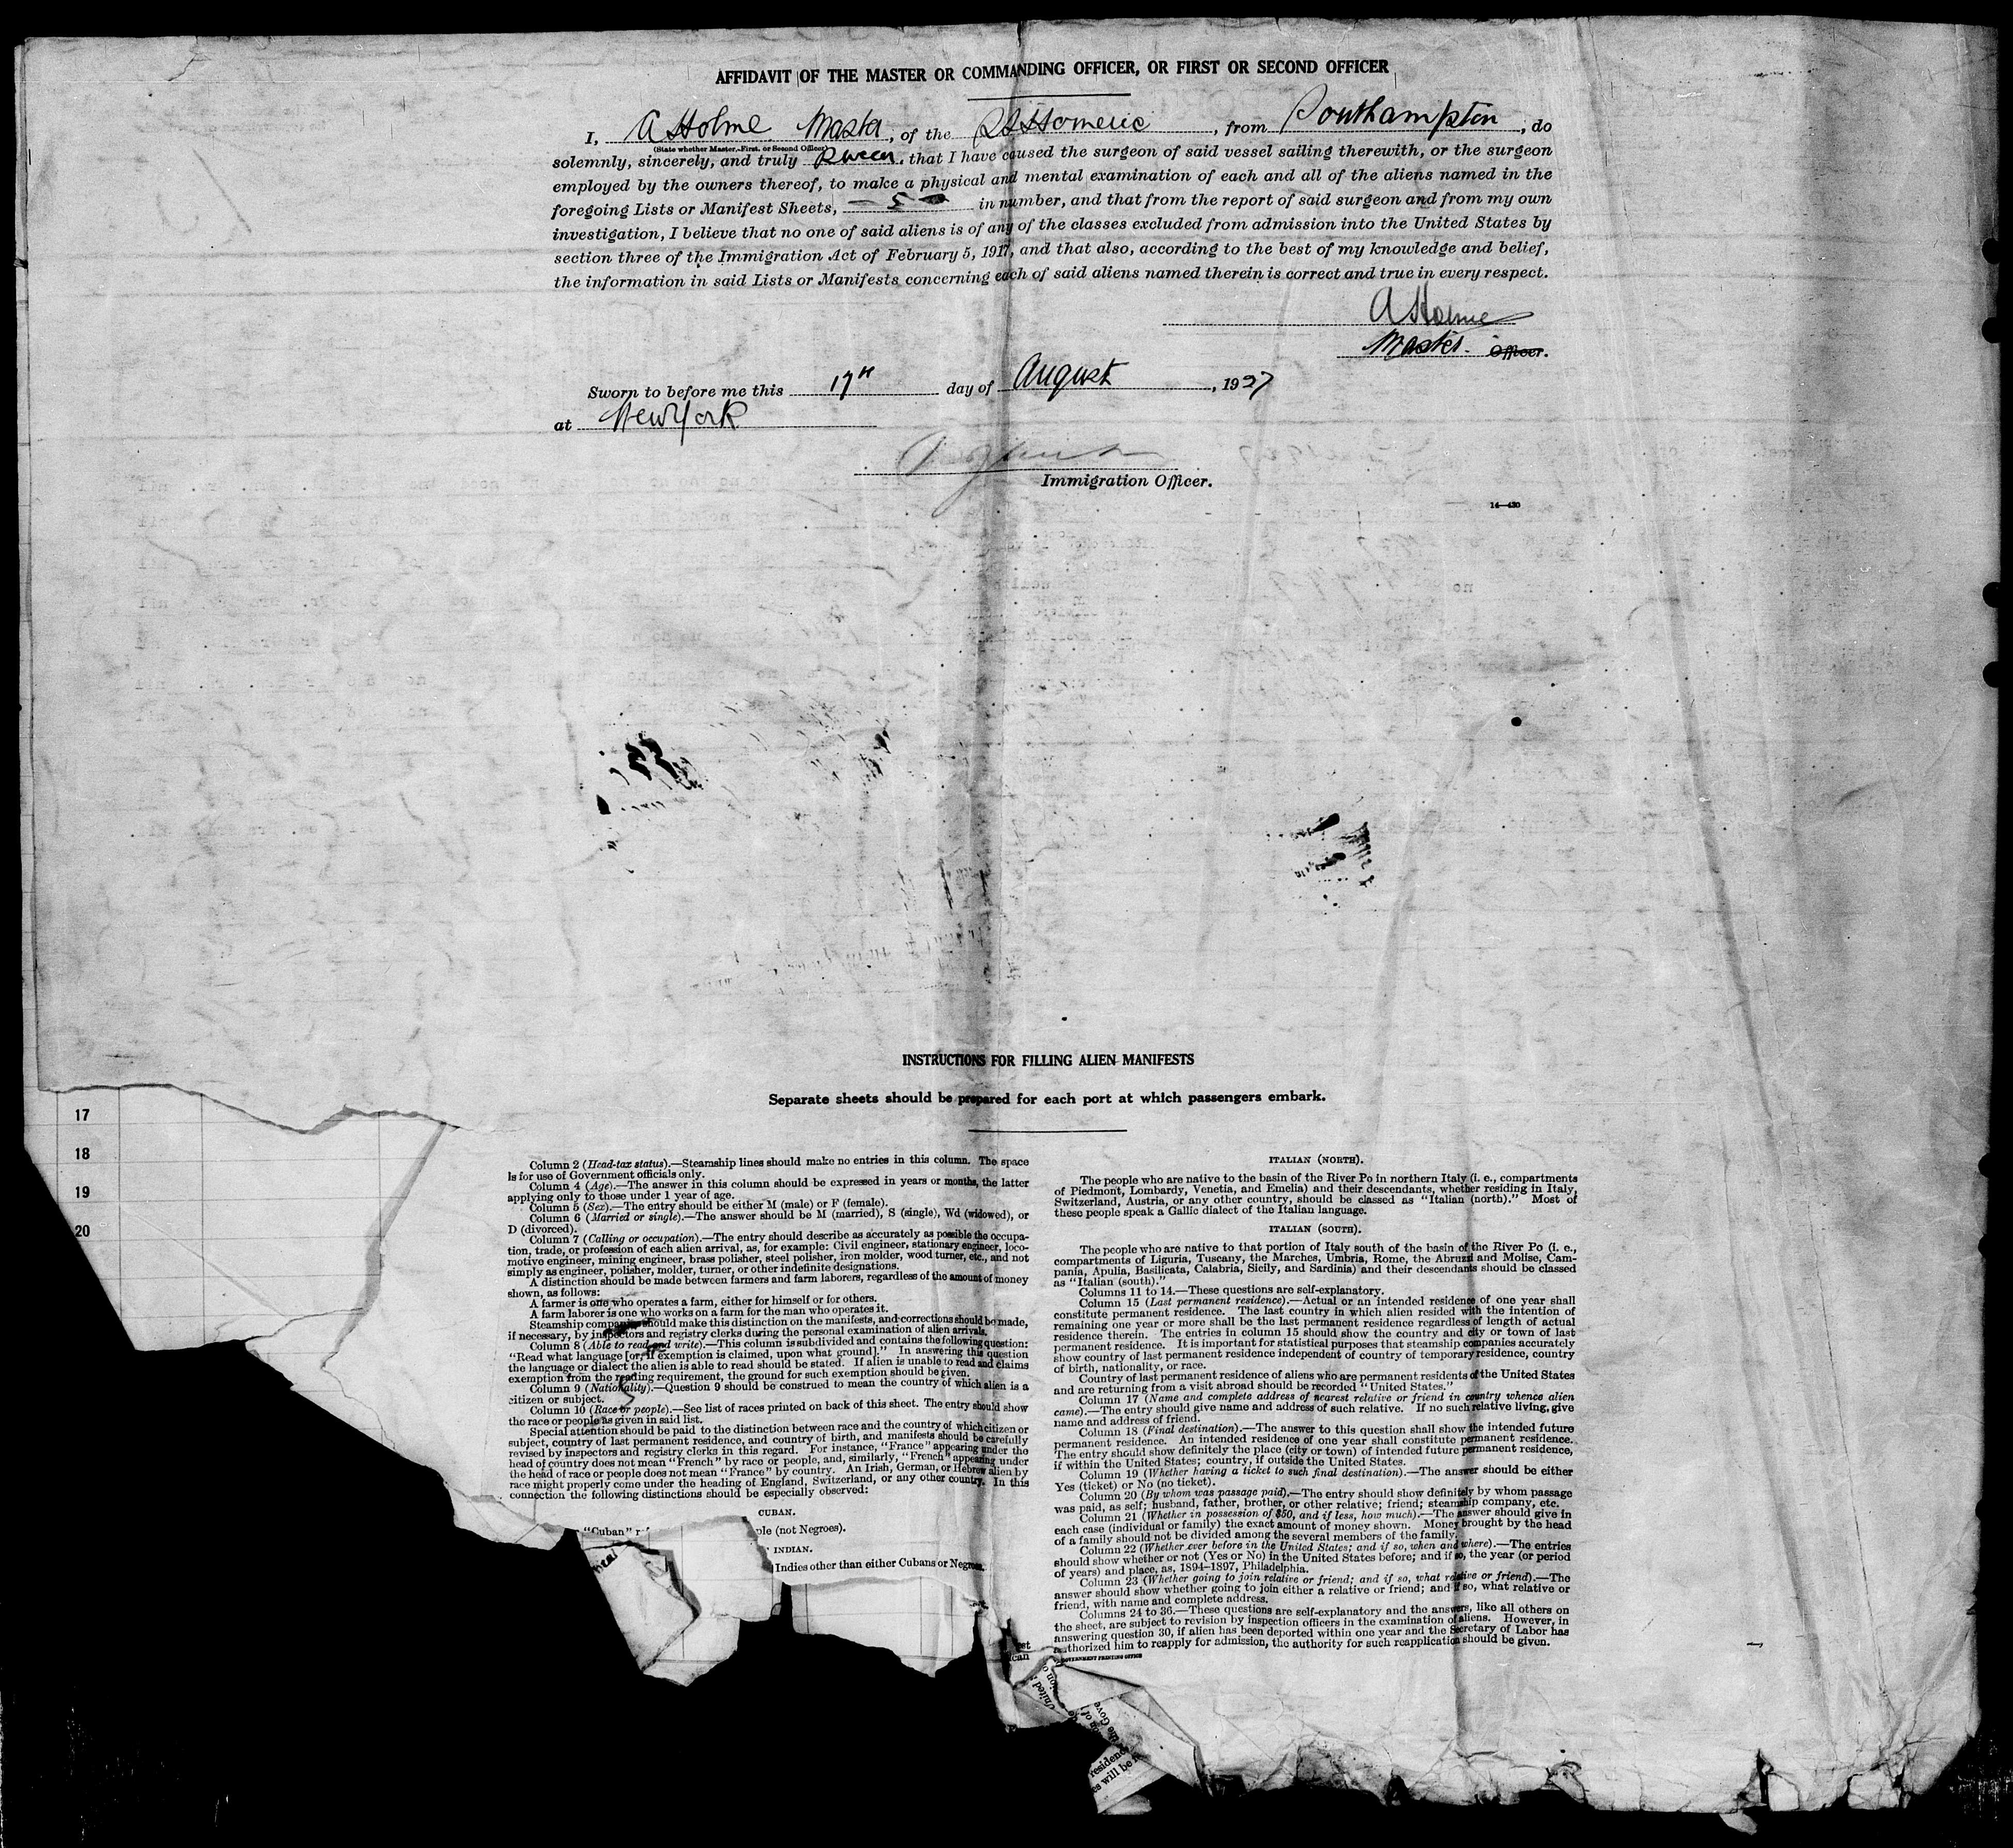 AFFIDAVIT OF THE MASTER OR COMMANDING OFFICER, OR FIRST OR SECOND OFFICER
I, A Holme Master, of the SS Homeric, from Southampton, do
(State whether Master, First, or Second Officer)
solemnly, sincerely, and truly swear, that I have caused the surgeon of said vessel sailing therewith, or the surgeon
employed by the owners thereof, to make a physical and mental examination of each and all of the aliens named in the
foregoing Lists or Manifest Sheets, - 5 - in number, and that from the report of said surgeon and from my own
investigation, I believe that no one of said aliens is of any of the classes excluded from admission into the United States by
section three of the Immigration Act of February 5, 1917, and that also, according to the best of my knowledge and belief,
the information in said Lists or Manifests concerning each of said aliens named therein is correct and true in every respect.
A Holme
Master. Officer.
Sworn to before me this 17th day of August, 1927
at New York
Immigration Officer.
14—430
INSTRUCTIONS FOR FILLING ALIEN MANIFESTS
Separate sheets should be prepared for each port at which passengers embark.
17
18
19
20
Column 2 (Head-tax status).—Steamship lines should make no entries in this column. The space
is for use of Government officials only.
Column 4 (Age).—The answer in this column should be expressed in years or months, the latter
applying only to those under 1 year of age.
Column 5 (Sex).—The entry should be either M (male) or F (female).
Column 6 (Married or single).—The answer should be M (married), S (single), Wd (widowed), or
D (divorced).
Column 7 (Calling or occupation).—The entry should describe as accurately as possible the occupa-
tion, trade, or profession of each alien arrival, as, for example: Civil engineer, stationary engineer, loco-
motive engineer, mining engineer, brass polisher, steel polisher, iron molder, wood turner, etc., and not
simply as engineer, polisher, molder, turner, or other indefinite designations.
A distinction should be made between farmers and farm laborers, regardless of the amount of money
shown, as follows:
A farmer is one who operates a farm, either for himself or for others.
A farm laborer is one who works on a farm for the man who operates it.
Steamship companies should make this distinction on the manifests, and corrections should be made,
if necessary, by inspectors and registry clerks during the personal examination of alien arrivals.
Column 8 (Able to read and write).—This column is subdivided and contains the following question:
“Read what language [or, if exemption is claimed, upon what ground].” In answering this question
the language or dialect the alien is able to read should be stated. If alien is unable to read and claims
exemption from the reading requirement, the ground for such exemption should be given.
Column 9 (Nationality).—Question 9 should be construed to mean the country of which alien is a
citizen or subject.
Column 10 (Race or people).—See list of races printed on back of this sheet. The entry should show
the race or people as given in said list.
Special attention should be paid to the distinction between race and the country of which citizen or
subject, country of last permanent residence, and country of birth, and manifests should be carefully
revised by inspectors and registry clerks in this regard. For instance, “France” appearing under the
head of country does not mean “French” by race or people, and, similarly, “French” appearing under
the head of race or people does not mean “France” by country. An Irish, German, or Hebrew alien by
race might properly come under the heading of England, Switzerland, or any other country. In this
connection the following distinctions should be especially observed:
CUBAN.
“Cuban” ple (not Negroes).
INDIAN.
Indies other than either Cubans or Negroes.
ITALIAN (NORTH).
The people who are native to the basin of the River Po in northern Italy (i. e., compartments
of Piedmont, Lombardy, Venetia, and Emelia) and their descendants, whether residing in Italy,
Switzerland, Austria, or any other country, should be classed as “Italian (north).” Most of
these people speak a Gallic dialect of the Italian language.
ITALIAN (SOUTH).
The people who are native to that portion of Italy south of the basin of the River Po (i. e.,
compartments of Liguria, Tuscany, the Marches, Umbria, Rome, the Abruzzi and Molise, Cam-
pania, Apulia, Basilicata, Calabria, Sicily, and Sardinia) and their descendants should be classed
as “Italian (south).”
Columns 11 to 14.—These questions are self-explanatory.
Column 15 (Last permanent residence).—Actual or an intended residence of one year shall
constitute permanent residence. The last country in which alien resided with the intention of
remaining one year or more shall be the last permanent residence regardless of length of actual
residence therein. The entries in column 15 should show the country and city or town of last
permanent residence. It is important for statistical purposes that steamship companies accurately
show country of last permanent residence independent of country of temporary residence, country
of birth, nationality, or race.
Country of last permanent residence of aliens who are permanent residents of the United States
and are returning from a visit abroad should be recorded “United States.”
Column 17 (Name and complete address of nearest relative or friend in country whence alien
came).—The entry should give name and address of such relative. If no such relative living, give
name and address of friend.
Column 18 (Final destination).—The answer to this question shall show the intended future
permanent residence. An intended residence of one year shall constitute permanent residence.
The entry should show definitely the place (city or town) of intended future permanent residence,
if within the United States; country, if outside the United States.
Column 19 (Whether having a ticket to such final destination).—The answer should be either
Yes (ticket) or No (no ticket).
Column 20 (By whom was passage paid).—The entry should show definitely by whom passage
was paid, as self; husband, father, brother, or other relative; friend; steamship company, etc.
Column 21 (Whether in possession of $50, and if less, how much).—The answer should give in
each case (individual or family) the exact amount of money shown. Money brought by the head
of a family should not be divided among the several members of the family.
Column 22 (Whether ever before in the United States; and if so, when and where).—The entries
should show whether or not (Yes or No) in the United States before; and if so, the year (or period
of years) and place, as, 1894–1897, Philadelphia.
Column 23 (Whether going to join relative or friend; and if so, what relative or friend).—The
answer should show whether going to join either a relative or friend; and if so, what relative or
friend, with name and complete address.
Columns 24 to 36.—These questions are self-explanatory and the answers, like all others on
the sheet, are subject to revision by inspection officers in the examination of aliens. However, in
answering question 30, if alien has been deported within one year and the Secretary of Labor has
authorized him to reapply for admission, the authority for such reapplication should be given.
GOVERNMENT PRINTING OFFICE